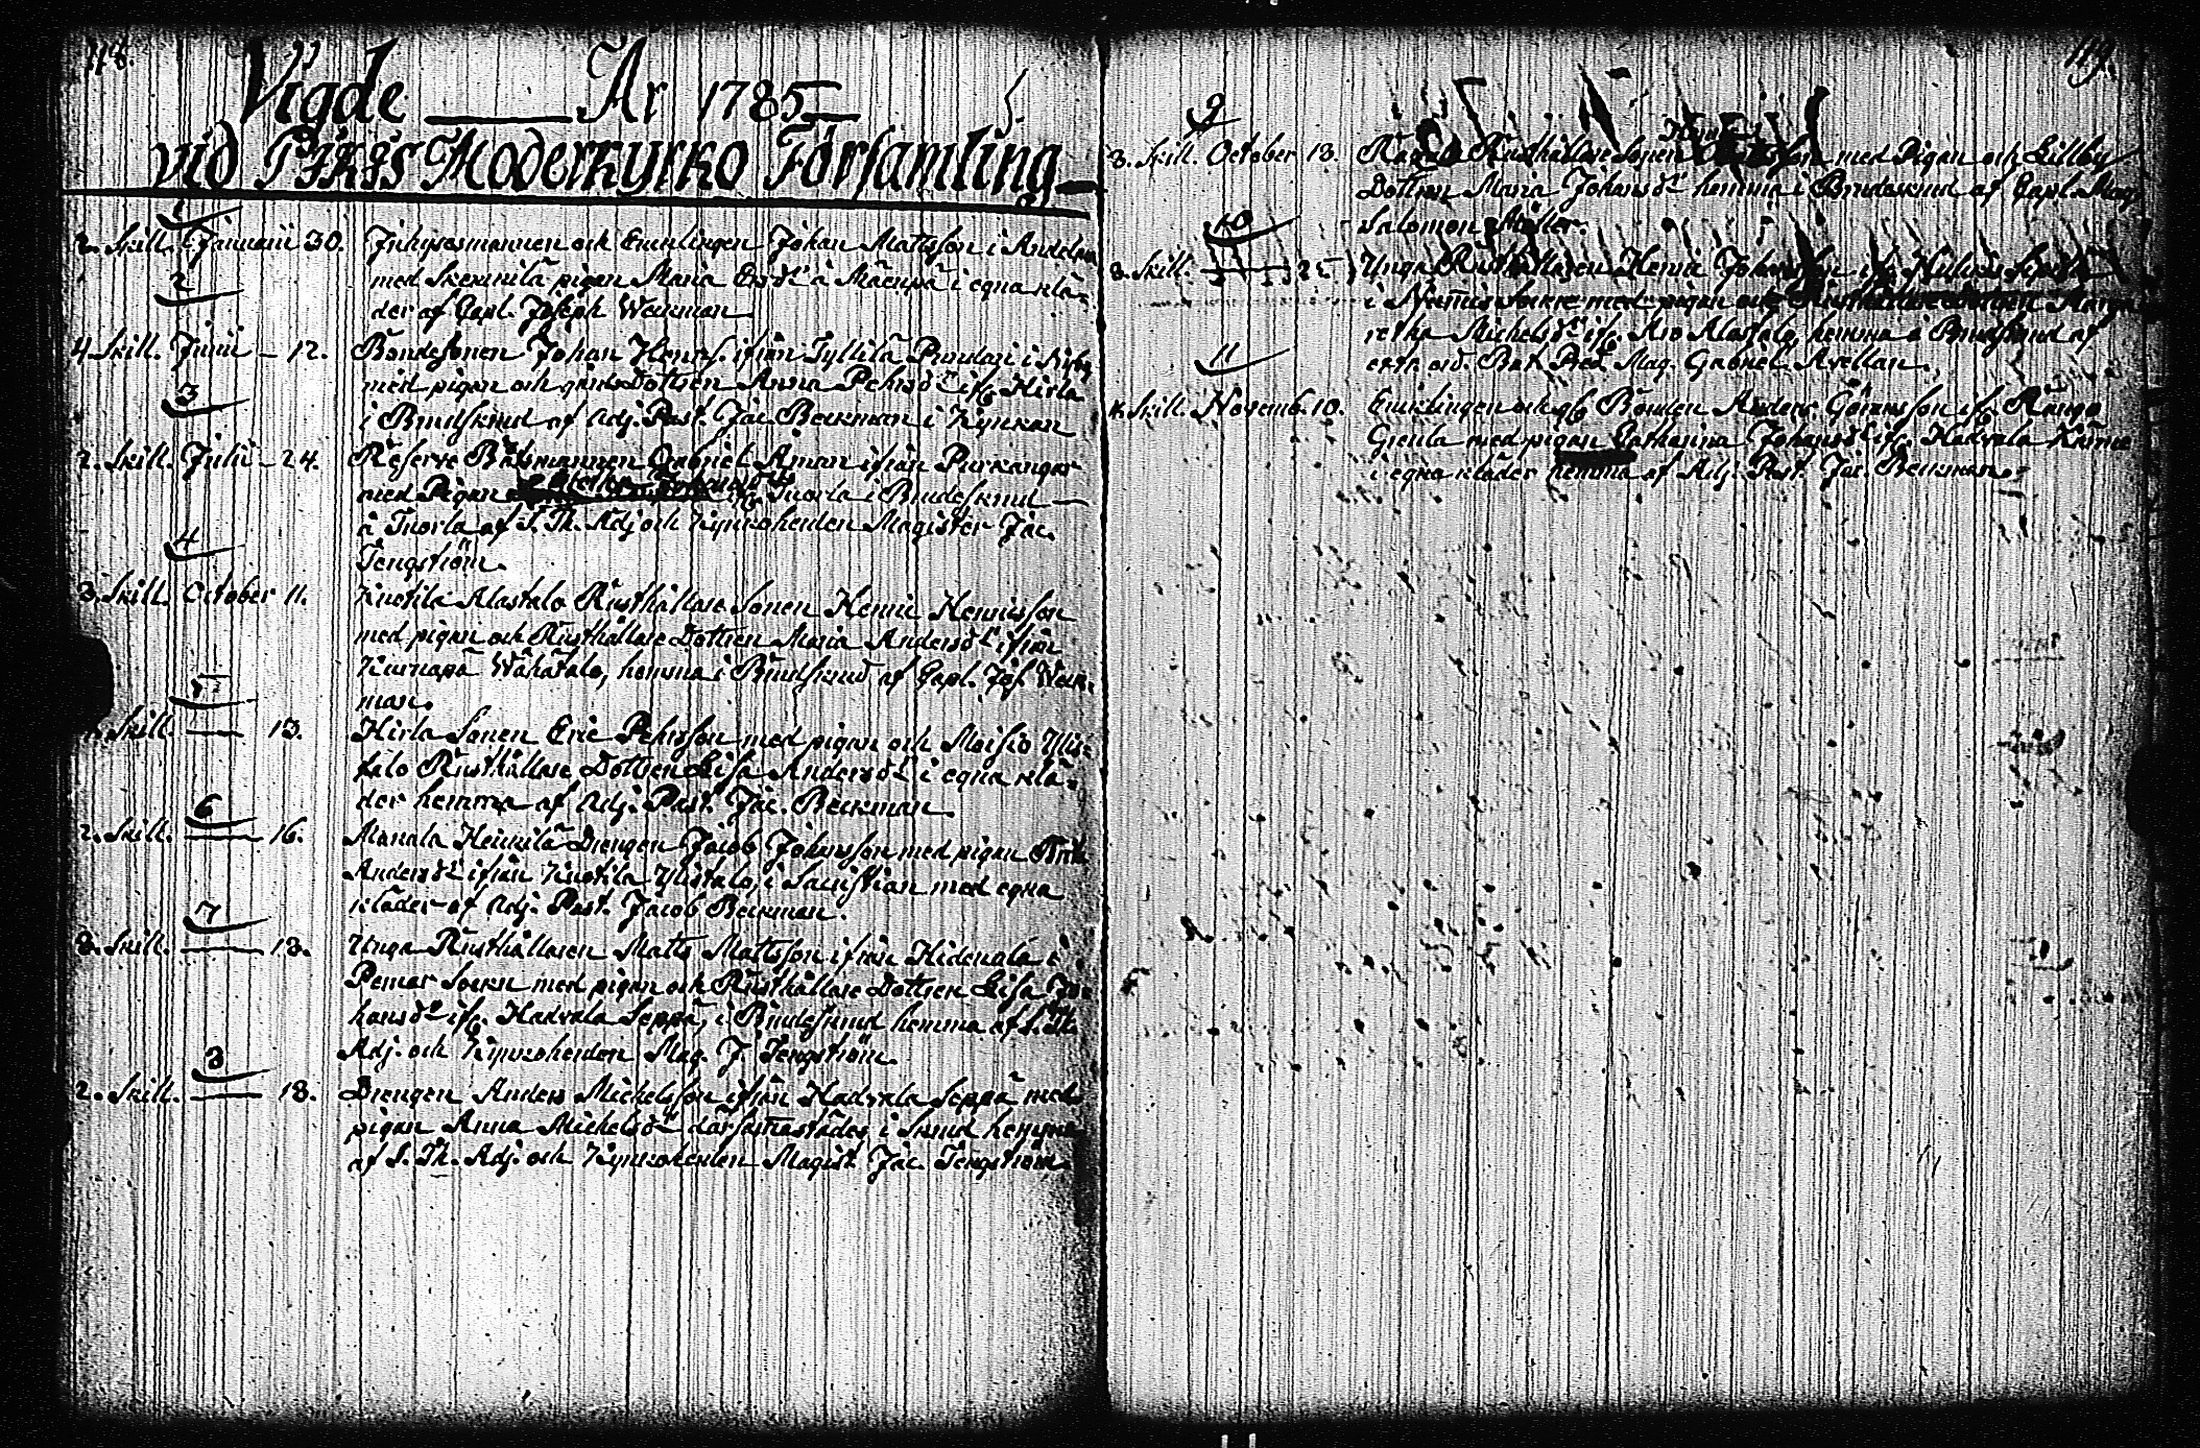 118.
Vigde — År 1785 —
vid Pikis Moderkyrko Församling —
1
2. Skill. Januarii 30. Inhysesmannen och Enklingen Johan Mattsson i
med pigan Maria Ersd:r à i egna klä-
2
der af Capl. Joseph Weckman.
4. Skill. Junii – 12. Bondesonen Johan Henrs. ifrån Tyllilä i
med pigan och Dottren Anna Pehrsd:r ifr. Hirla
3
i Brudskrud af Adj. Past. Jac. Beckman i Kyrkan
2. Skill. Julii – 24. Reserve Båtsmannen Gabriel Åman ifrån Purkangar
med Pigan ifr. Tuorla i Brudeskrud —
å Tuorla af S. Th. Adj och Kyrkoherden Magister Jac.
4
Tengström.
3. Skill. October 11. Knotila Alastalo Rusthållare Sonen Henric Henricsson
med pigan och Rusthållare Dottren Maria Andersd:r ifrån
Wähätalo, hemma i Brudskrud af Capl. Jos. Weck-
5
man.
Skill. — 13. Hirla Sonen Eric Pehrsson med pigan och Moisio Ylis-
talo Rusthållare Dottren Lisa Andersd:r i egna klä-
der hemma af Adj. Past. Jac. Beckman.
6
2. Skill. — 16. Manala Heickilä Drengen Jacob Johansson med pigan
Andersd:r ifrån Knotila Ylistalo, i Sacristian med egna
kläder af Adj. Past. Jacob Beckman.
7
3. Skill. — 18. Unga Rusthållaren Matts Mattsson ifrån i
Pemar Sockn med pigan och Rusthållare Dottren Lisa Jo-
hansd:r ifr. Hadvala Seppä, i Brudskrud hemma af S. Th.
Adj. och Kyrkoherden Mag. J. Tengström.
8
2. Skill. — 18. Drengen Anders Michelsson ifrån Hadvala Seppä med
pigan Anna Michelsd:r därsammastädes i Skrud hemma
af S. Th. Adj. och Kyrkoherden Magist. Jac. Tengström.
119.
9
3. Skill. October 18. Rusthållare Sonen med Pigan och Lillby
Dottren Maria Johansd:r hemma i Brudeskrud af Capl. Mag.
10
Salomon Möller.
3. Skill. — 25. Unga Rusthållaren Henric Johansson ifr.
i Nummis Sokne med pigan och Marga-
retha Michelsd:r ifr. Alastalo, hemma i Brudskrud af
11
extr. ord. Bat. Pred. Mag. Gabriel Avellan.
4. Skill. Novemb. 10. Enklingen och Bonden Anders Göransson ifr. Runga
med pigan Catharina Johansd:r ifr. Hadvala
i egna kläder hemma af Adj. Past. Jac. Beckman.